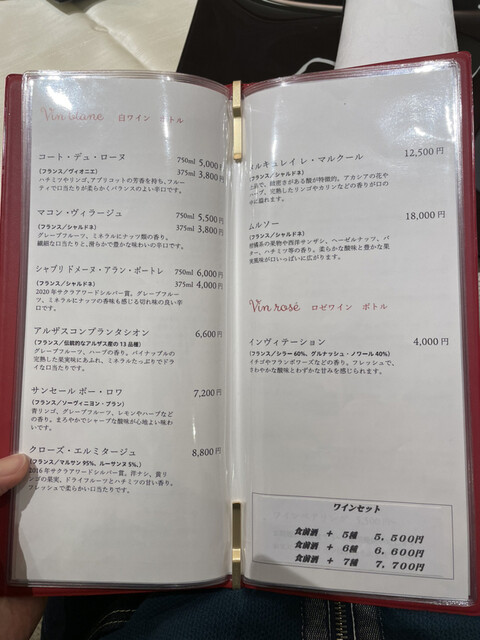 Vin blanc 白ワイン ボトル
コート・デュ・ローヌ 750ml 5,000円
(フランス/ヴィオニエ) 375ml 3,800円
ハチミツやリンゴ、アプリコットの芳香を持ち、フルー
ティで口当たりが柔らかくバランスのよい辛口です。
マコン・ヴィラージュ 750ml 5,500円
(フランス/シャルドネ) 375ml 3,800円
グレープフルーツ、ミネラルにナッツ類の香り。
繊細な口当たりと、滑らかで豊かな味わいの辛口です。
シャブリドメーヌ・アラン・ボートレ 750ml 6,000円
(フランス/シャルドネ) 375ml 4,000円
2020年サクラアワードシルバー賞。グレープフルー
ツ、ミネラルにナッツの香味も感じる切れ味の良い辛
口です。
アルザスコンプランタシオン 6,600円
(フランス/伝統的なアルザス産の13品種)
グレープフルーツ、ハーブの香り。パイナップルの
完熟した果実味にあふれ、ミネラルたっぷりでドラ
イな口当たりです。
サンセール ボー・ロワ 7,200円
(フランス/ソーヴィニヨン・ブラン)
青リンゴ、グレープフルーツ、レモンやハーブなど
の香り。まろやかでシャープな酸味が心地よい味わ
いです。
クローズ・エルミタージュ 8,800円
(フランス/マルサン95%、ルーサンヌ5%,)
2016年サクラアワードシルバー賞。洋ナシ、黄リ
ンゴの果実、ドライフルーツとハチミツの甘い香り。
フレッシュで柔らかい口当たりです。
メルキュレイ レ・マルクール 12,500円
(フランス/シャルドネ)
上品で、緻密さがある酸が特徴的。アカシアの花や
ハーブ、完熟したリンゴやカリンなどの香りが口の
中に溢れます。
ムルソー 18,000円
(フランス/シャルドネ)
柑橘系の果物や西洋サンザシ、ヘーゼルナッツ、バ
ター、ハチミツ等の香り。柔らかな酸味と豊かな果
実風味が口いっぱいに広がります。
Vin rosé ロゼワイン ボトル
インヴィテーション 4,000円
(フランス/シラー60%、グルナッシュ・ノワール40%)
イチゴやフランボワーズなどの香り。フレッシュで、
さわやかな酸味とわずかな甘みを感じられます。
ワインセット
食前酒 + 5種 5,500円
食前酒 + 6種 6,600円
食前酒 + 7種 7,700円